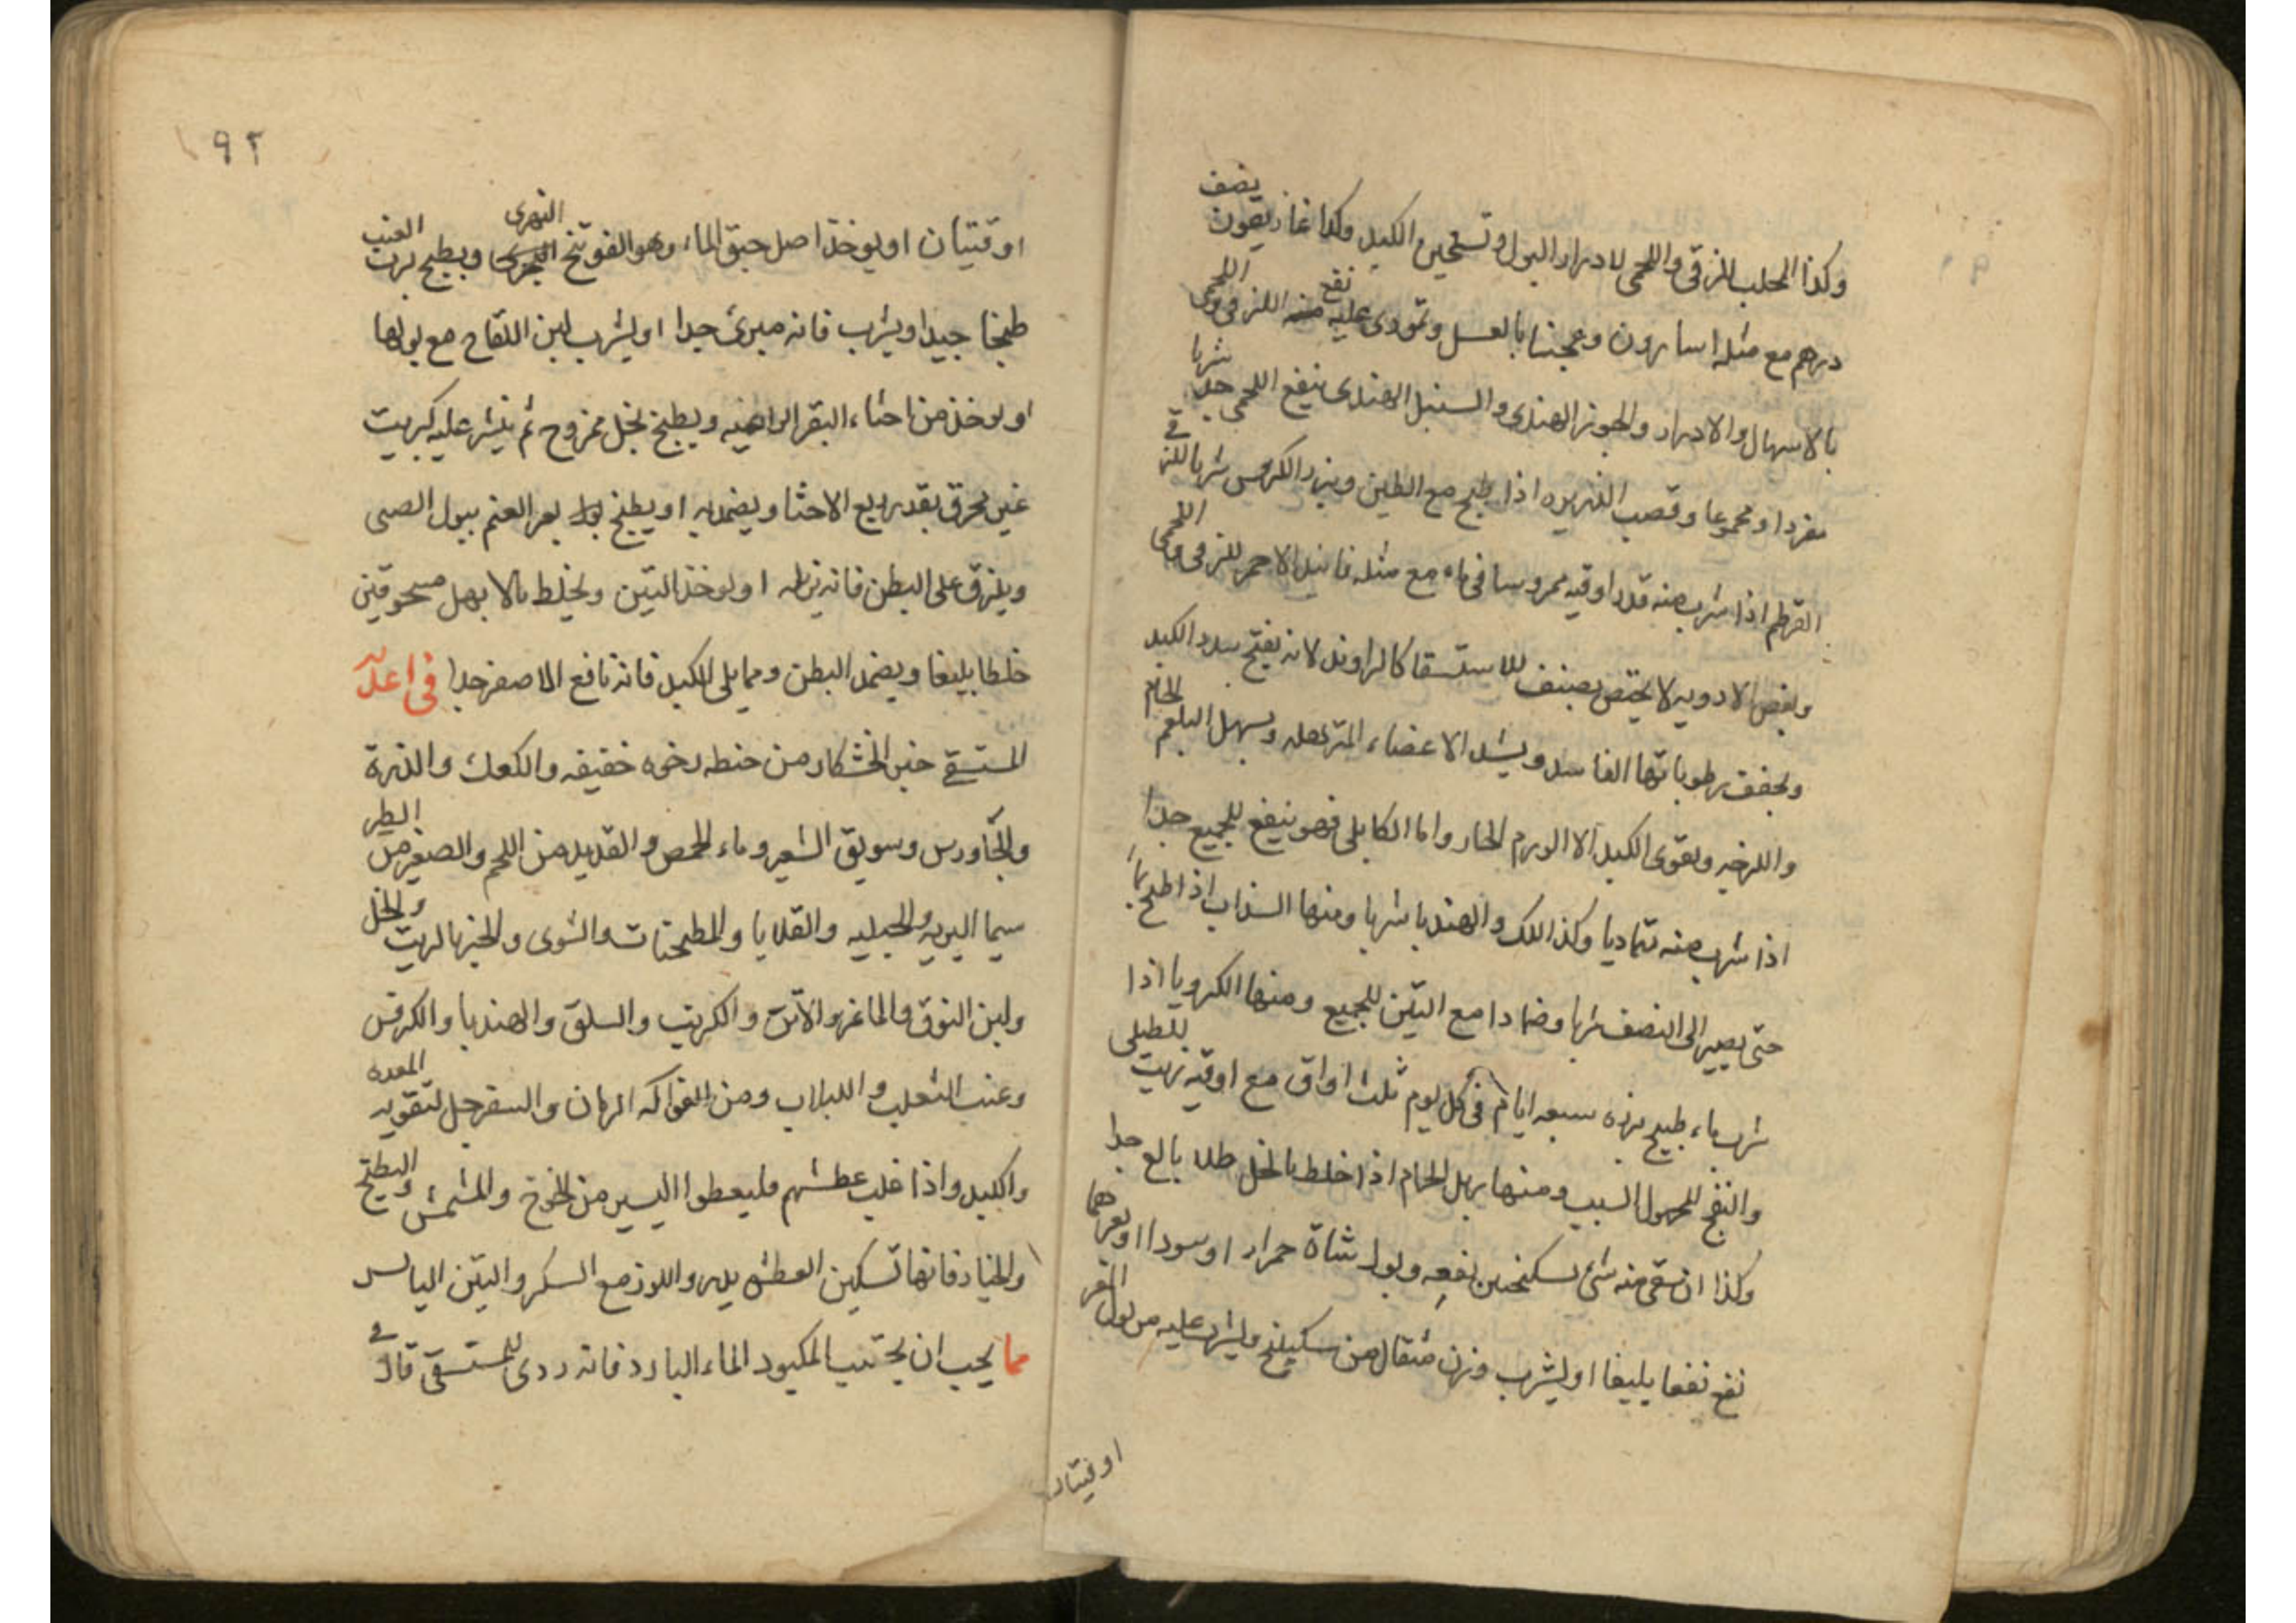 وكذا المحلب للزقى واللحمى لادرار البول وتسخين الكبد وكذا غاريقون نصف
درهم مع مثله اسارون وعجنا بالعسل وتمودى عليه نفع الزقى واللحمى
بالاسهال والادرار والجوز الهندى والسنبل الهندى ينفع اللحمى جدا شربا
مفردا ومجموعا وقصب الذريره اذا طبخ مع الطين وبزر الكرفس شربا للزقى
القرطم اذا شرب منه قدر اوقيه ممروسا فى ماء مع مثله فانيد الاحمر للزقى واللحمى
وبعض الادويه لا يختص بصنف للاستسقا كالراوند لانه يفتح سدد الكبد
ويجفف رطوباتها الفاسده ويشد الاعضاء المترهله ويسهل البلغم الخام
واللزج ويقوى الكبد الا الورم الحار واما الكابلى فهو ينفع للجميع جدا
اذا شرب منه تماديا وكذا اللك والهندبا شربا ومنها السذاب اذا طبخ بماء
حتى يصير الى النصف شربا وضمادا مع التين للجميع ومنها الكرويا اذا
شرب ماء طبيخ بزره سبعه ايام فى كل يوم ثلث اواق مع اوقيه زيت للطبلى
والنفخ المجهول السبب ومنها زبل الحمام اذا خلط بالخل طلا بالغ جدا
وكذا ان سقى منه شئ بسكنجبين نفعه وبول شاة حمرا او سودا او بعرهما
نفع نفعا بليغا او يشرب وزن مثقال من سكبينج ويشرب عليه من بول
اوقيتان
١٩٢
اوقيتان او يوخذ اصل حبق الماء وهو الفوتنج النهرى ويطبخ برب العنب
طبخا جيدا ويشرب فانه مبرئ جدا او يشرب لبن اللقاح مع بولها
او يوخذ من احثاء البقر الراعيه ويطبخ بخل ممزوج ثم ينثر عليه كبريت
غير محرق بقدر ربع الاحثا ويضمد به او يطبخ بعر الغنم ببول الصبى
ويلزق على البطن فانه او يوخذ التين ويخلط بالابهل مسحوقين
خلطا بليغا ويضمد البطن ومما يلى الكبد فانه نافع الاصفر جدا فى اعذيه
المستسقى خبز الخشكار من حنطه رخوه خفيفه والكعك والذرة
والجاورس وسويق الشعير وماء الحمص والقديد من اللحم والصغير من الطير
سيما البريه والجبليه والقلايا والمطجنات والشوى والخبز بالزيت والخل
ولبن النوق والماعز والاتن والكرنب والسلق والهندبا والكرفس
وعنب الثعلب واللبلاب ومن الفواكه الرمان والسفرجل لتقويه المعده
والكبد واذا غلب عطشهم فليعطوا اليسير من الخوخ والمشمش والبطيخ
والخيار فانها تسكين العطش واللوز مع السكر والتين اليابس
مما يجب ان يجتنب المكبود الماء البارد فانه ردى للمستسقى قال فى